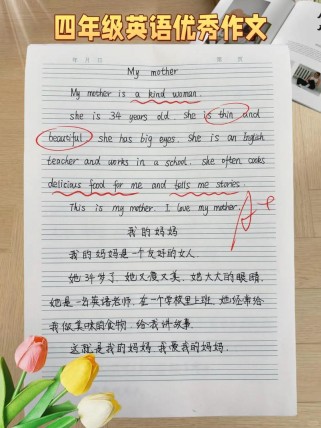 四年级英语优秀作文
My mother
My mother is a kind woman.
she is 34 years old. she is thin and
beautiful. she has big eyes. She is an English
teacher and works in a school. she often cooks
delicious food for me and tells me stories.
This is my mother. I love my mother.
A+
我的妈妈
我的妈妈是一个友好的女人.
她34岁了.她又瘦又美.她大大的眼睛.
她是一名英语老师.在一个学校里上班.她经常给
我做美味的食物.给我讲故事.
这就是我的妈妈.我爱我的妈妈.